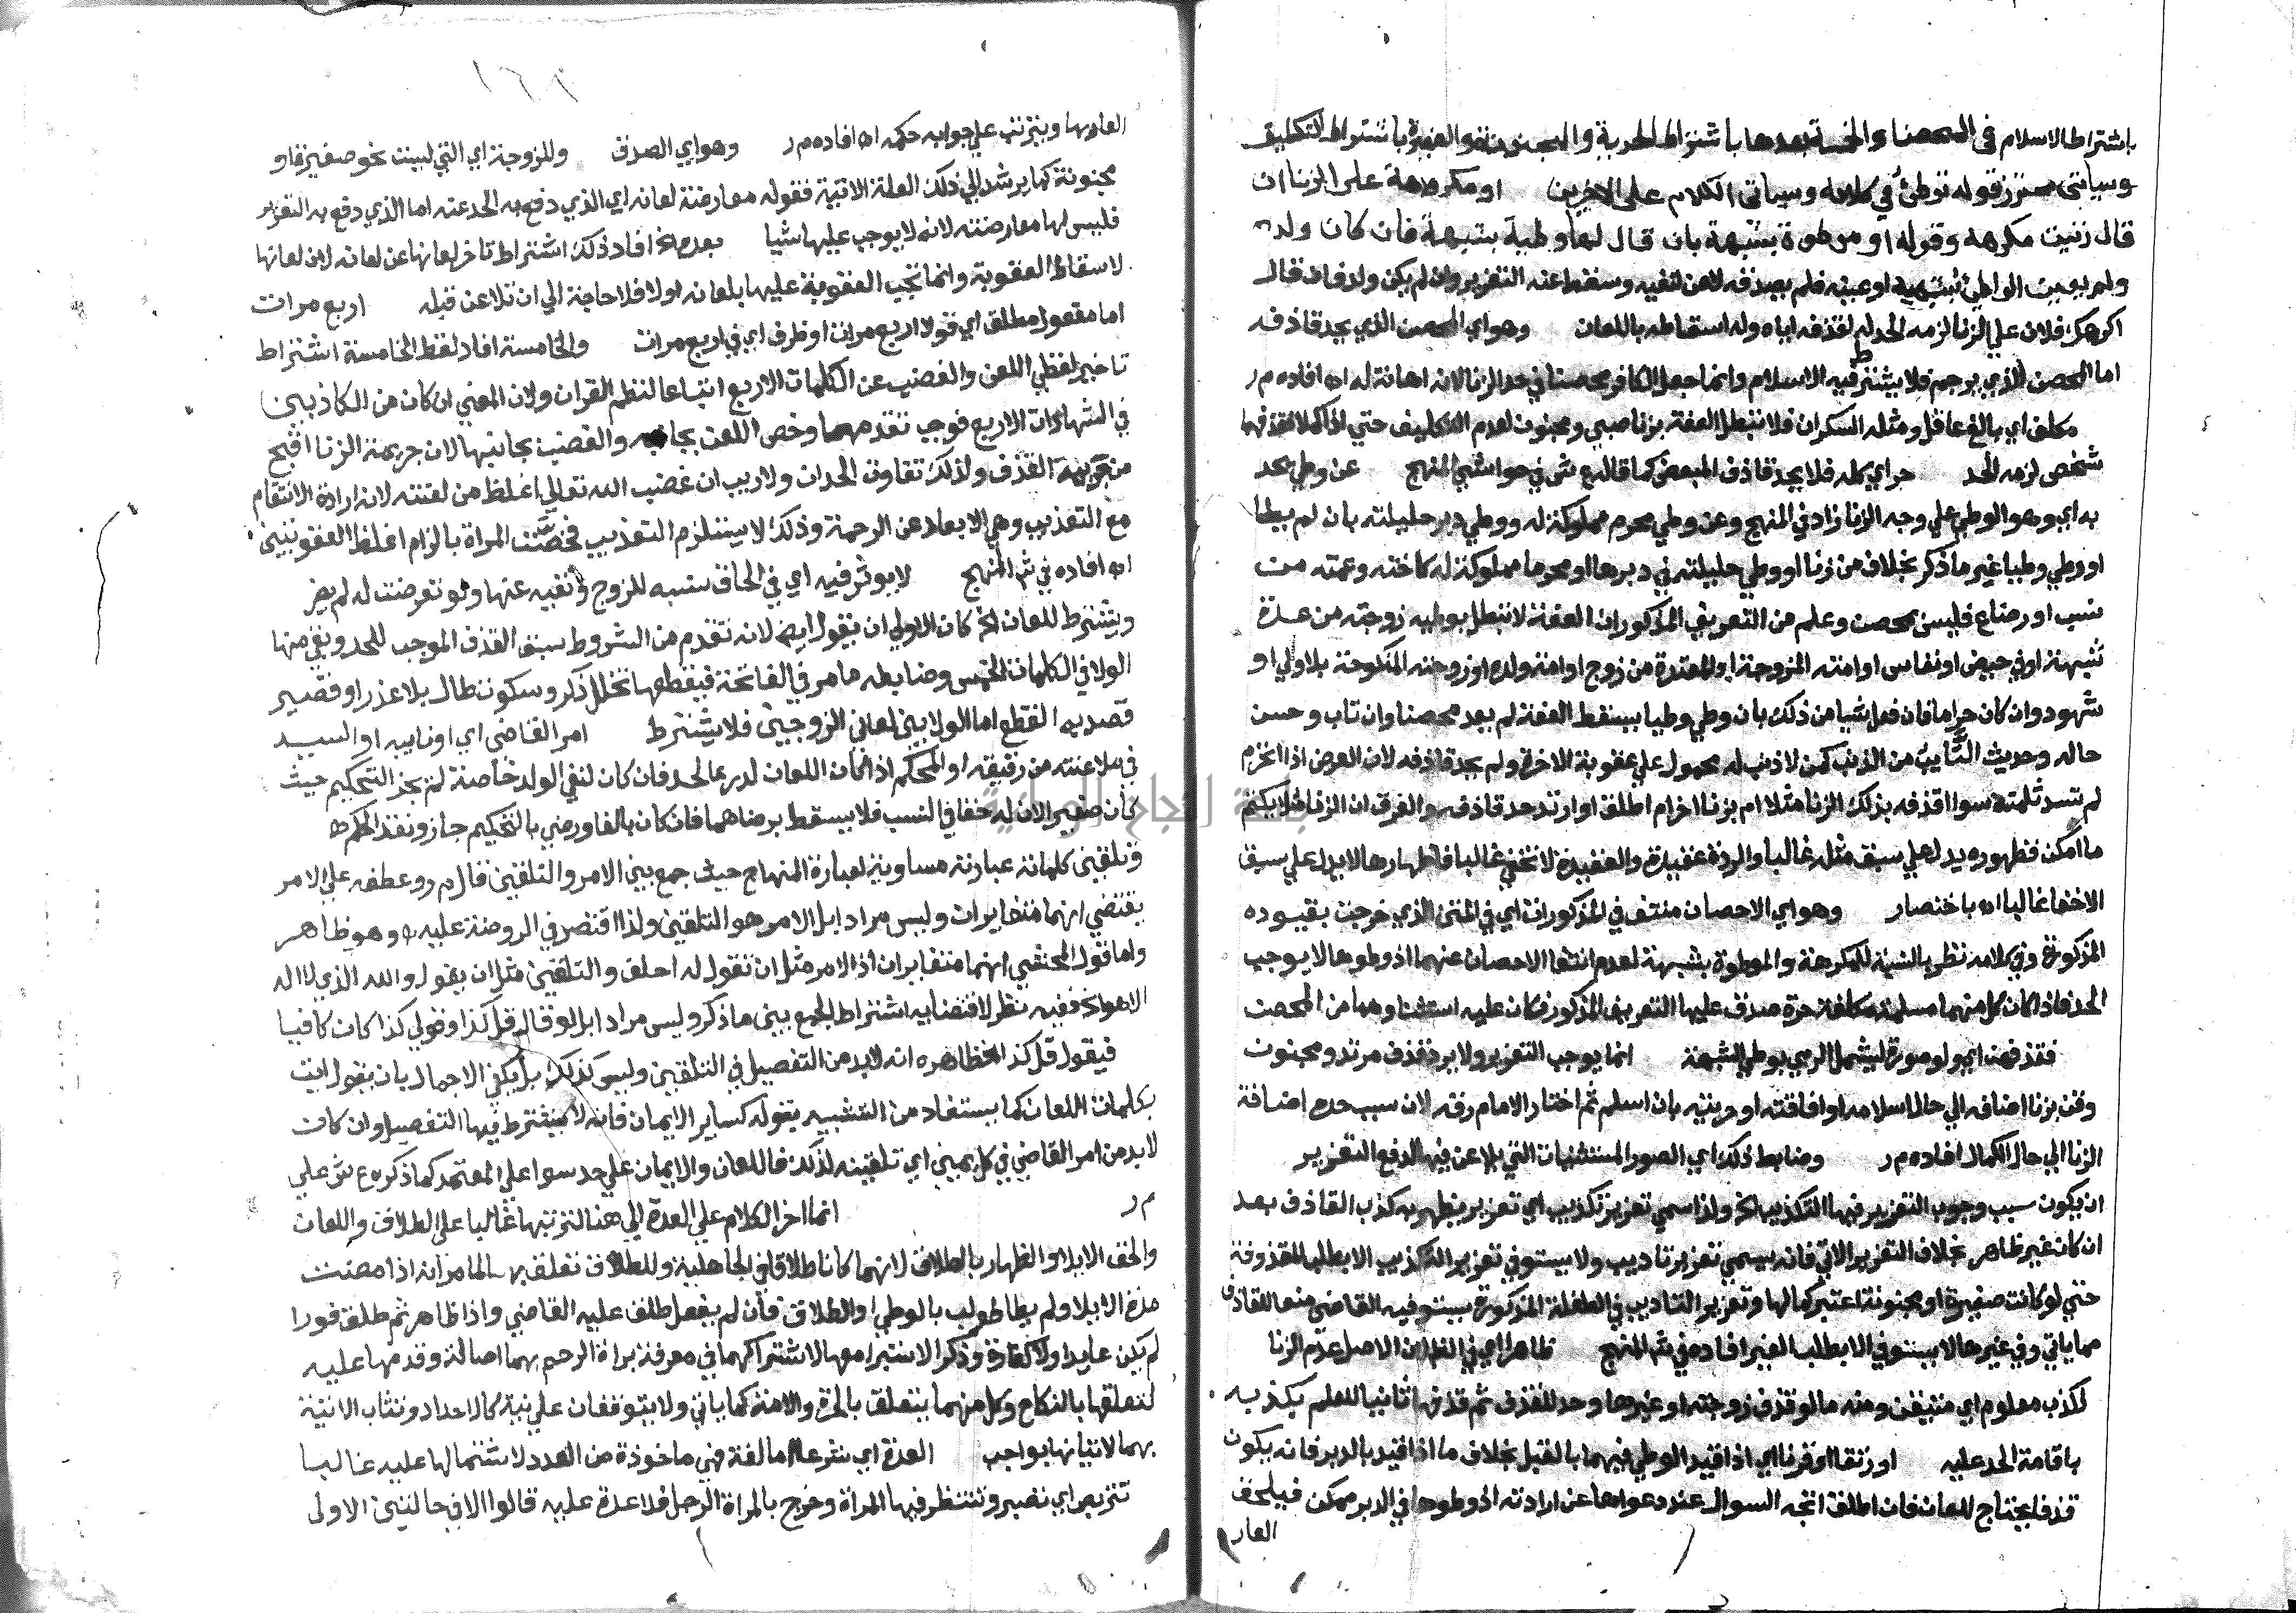 باشتراط الاسلام في المحصنا والخمسة بعدها باشتراط الحرية والمجنونة والصغيرة باشتراط التكليف
وسياتي محترز قوله توطئ في كلامه وسياتي الكلام على الاخيرين او مكرهة على الزنا ان
قال زنيت مكرهة وقوله او موطوءة بشبهة بان قال لها وطية بشبهة فان كان ولد
ولم يعين الواطئ بشبهة او عينه فلم يصدقه لاعن لنفيه وسقط عنه التعزير وان لم يكن ولد فان قال
اكرهك فلان علي الزنا لزمه الحد له لقذفه اياه وله اسقاطه باللعان وهو اي المحصن الذي يحد قاذفه
اما المحصن الذي يرجم فلا يشترط فيه الاسلام وانما جعل الكافر محصنا في حد الزنا لانه اهانة له اه افاده م ر
مكلف اي بالغ عاقل ومثله السكران فلا تبطل العفة بزنا صبي ومجنون لعدم التكليف حتي اذا كملا فقذفهما
شخص لزمه الحد حر اي كله فلا يحد قاذف المبعض كما قاله ع ش في حواشي المنهج عن وطي يحد
به اي وهو الوطي علي وجه الزنا زاد في المنهج وعن وطي محرم مملوكة له ووطي دبر حليلته بان لم يطا
او وطي وطيا غير ما ذكر بخلاف من زنا او وطي حليلته في دبرها او محرما مملوكة له كاخته وعمته من
نسب او رضاع فليس بمحصن وعلم من التعريف المذكور ان العفة لا تبطل بوطيه زوجته من عدة
شبهة او في حيض او نفاس او امته المزوجة او المعتدة من زوج او امة ولده او زوجته المنكوحة بلا ولي او
شهود وان كان حراما فان فعل شيا من ذلك بان وطي وطيا يسقط العفة لم يعد محصنا وان تاب وحسن
حاله وحديث التايب من الذنب كمن لا ذنب له محمول علي عقوبة الاخرة ولم يحد قاذفه لان العرض اذا انخرم
لم تسد ثلمته سوا قذفه بذلك الزنا مثلا ام بزنا اخر ام اطلق او ارتد حد قاذفه والفرق ان الزنا مثلا يكتم
ما امكن فظهوره يدل علي سبق مثله غالبا والردة عقيدة والعقيدة لا تخفي غالبا فاظهارها لا يدل علي سبق
الاخفا غالبا اه باختصار وهو اي الاحصان منتف في المذكورات اي في المتن الذي خرجت بقيوده
المذكورة وفي كلامه نظر بالنسبة للمكرهة والموطوة بشبهة لعدم انتفا الاحصان عنهما اذ وطوها لا يوجب
الحد فاذا كان كل منهما مسلمة مكلفة حرة صدق عليها التعريف المذكور فكان عليه استثناوهما من المحصن
فقذفهن اي ولو صورة ليشمل الرمي بوطي الشبهة انما يوجب التعزير ولا يرد قذف مرتد ومجنون
وقن بزنا اضافه الي حال اسلامه او افاقته او حريته بان اسلم ثم اختار الامام رقه لان سبب حده اضافة
الزنا الي حال الكمال افاده م ر وضابط ذلك اي الصور المستثنيات التي يلاعن فيها لدفع التعزير
ان يكون سبب وجوب التعزير فيها التكذيب الخ ولذا سمي تعزير تكذيب اي تعزير يظهر به كذب القاذف بعد
ان كان غير ظاهر بخلاف التعزير الاتي فانه يسمي تعزير تاديب ولا يستوفي تعزير التكذيب الا بطلب المقذوفة
حتي لو كانت صغيرة او مجنونة اعتبر كمالها وتعزير التاديب في الطفلة المذكورة يستوفيه القاضي منعا للقاذف
مما ياتي وفي غيرها لا يستوفي الا بطلب الغير افاده في ش المنهج ظاهرا اي في الظاهر لان الاصل عدم الزنا
لكذب معلوم اي متيقن ومنه ما لو قذف زوجته او غيرها وحد للقذف ثم قذفها ثانيا للعلم بكذبه
باقامة الحد عليه او رتقا او قرنا اي اذا قيد الوطي فيهما بالقبل بخلاف ما اذا قيد بالدبر فانه يكون
قذفا يحتاج للعان فان اطلق اتجه السوال عند دعواها عن ارادته اذ وطوها في الدبر ممكن فيلحق
العار
العار بها ويترتب علي جوابه حكمه اه افاده م ر وهو اي الصدق وللزوجة اي التي ليست نحو صغيرة او
مجنونة كما يرشد الي ذلك العلة الاتية فقوله معارضة لعانه اي الذي دفع به الحد عنه اما الذي دفع به التعزير
فليس لها معارضته لانه لا يوجب عليها شيا بعده افاد ذلك اشتراط تاخر لعانها عن لعانه لان لعانها
لاسقاط العقوبة وانما تجب العقوبة عليها بلعانه اولا فلا حاجة الي ان تلاعن قبله اربع مرات
اما مفعول مطلق اي قولا اربع مرات او ظرف اي في اربع مرات والخامسة افاد لفظ الخامسة اشتراط
تاخير لفظي اللعن والغضب عن الكلمات الاربع اتباعا لنظم القران ولان المعني ان كان من الكاذبين
في الشهادات الاربع فوجب تقدمهما وخص اللعن بجانبه والغضب بجانبها لان جريمة الزنا اقبح
من جريمة القذف ولذلك تفاوت الحدان ولا ريب ان غضب الله تعالي اغلظ من لعنته لانه ارادة الانتقام
مع التعذيب وهي الابعاد عن الرحمة وذلك لا يستلزم التعذيب فخصت المراة بالزام اغلظ العقوبتين
اه افاده في ش المنهج لا يوثر فيه اي في الحاق نسبه للزوج ونفيه عنها ولو تعرضت له لم يضر
ويشترط للعان الخ كان الاولي ان يقول ايضا لانه تقدم من الشروط سبق القذف الموجب للحد وبقي منها
الولا في الكلمات الخمس وضابطه ما مر في الفاتحة فيقطعها تخلل ذكر وسكوت طال بلا عذر او قصير
قصد به القطع اما الولا بين لعاني الزوجين فلا يشترط امر القاضي اي او نايبه او السيد
في ملاعنته من رقيقه او المحكم اذا كان اللعان لدرء الحد فان كان لنفي الولد خاصة لم يجز التحكيم حيث
كان صغيرا لان له حقا في النسب فلا يسقط برضاهما فان كان بالغا ورضي بالتحكيم جاز ونفذ الحكم
وتلقين كلماته عبارته مساوية لعبارة المنهاج حيث جمع بين الامر والتلقين قال م ر وعطفه علي الامر
يقتضي انهما متغايران وليس مرادا بل الامر هو التلقين ولذا اقتصر في الروضة عليه اه وهو ظاهر
واما قول المحشي انهما متغايران اذ الامر مثل ان تقول له احلف والتلقين مثل ان يقول والله الذي لا اله
الا هو الخ ففيه نظر لاقتضايه اشتراط الجمع بين ما ذكر وليس مرادا بل لو قال قل كذا او قولي كذا كان كافيا
فيقول قل كذا الخ ظاهره انه لابد من التفصيل في التلقين وليس كذلك بل يكفي الاجمال بان يقول ايت
بكلمات اللعان كما يستفاد من التشبيه بقوله كساير الايمان فانه لا يشترط فيها التفصيل وان كانت
لا بد من امر القاضي في كل يمين اي تلقينه لذلك فاللعان والايمان علي حد سوا علي المعتمد كما ذكره ع ش علي
م ر انما اخر الكلام علي العدة الي هنا لترتبها غالبا علي الطلاق واللعان
والحق الايلا والظهار بالطلاق لانهما كانا طلاقا في الجاهلية وللطلاق تعلق بهما لما مر انه اذا مضت
مدة الايلا ولم يطا طولب بالوطي او الطلاق فان لم يفعل طلق عليه القاضي واذا ظاهر ثم طلق فورا
لم يكن عايدا ولا كفارة وذكر الاستبرا معها لاشتراكهما في معرفة براة الرحم بهما اصالة وقدمها عليه
لتعلقها بالنكاح وكل منهما يتعلق بالحرة والامة كما ياتي ولا يتوقفان علي نية كالاحداد وتثاب الاتية
بهما لاتيانها بواجب العدة اي شرعا اما لغة فهي ماخوذة من العدد لاشتمالها عليه غالبا
تتربص اي تصبر وتنتظر فيها المراة وخرج بالمراة الرجل فلا عدة عليه قالوا الا في حالتين الاولي